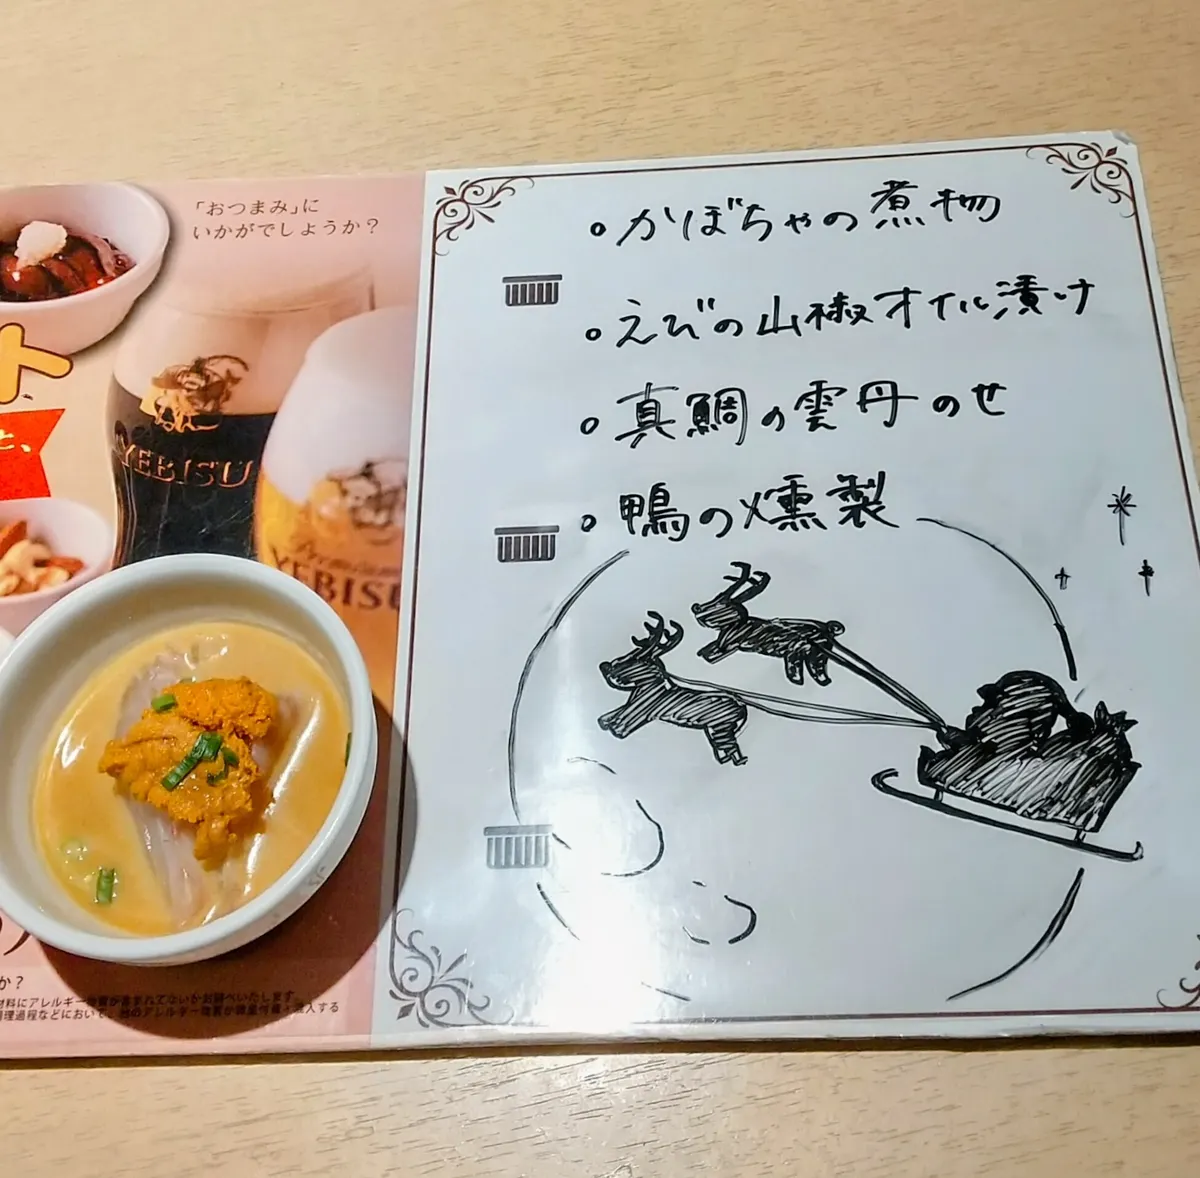 「おつまみ」に
いかがでしょうか？
ト
と、
YEBISU
Premium
YEBISU
か？
材料にアレルギー物質が含まれていないかお調べいたします。
調理過程などにおいて、他のアレルギー物質が微量付着・混入する
。かぼちゃの煮物
。えびの山椒オイル漬け
。真鯛の雲丹のせ
。鴨の燻製